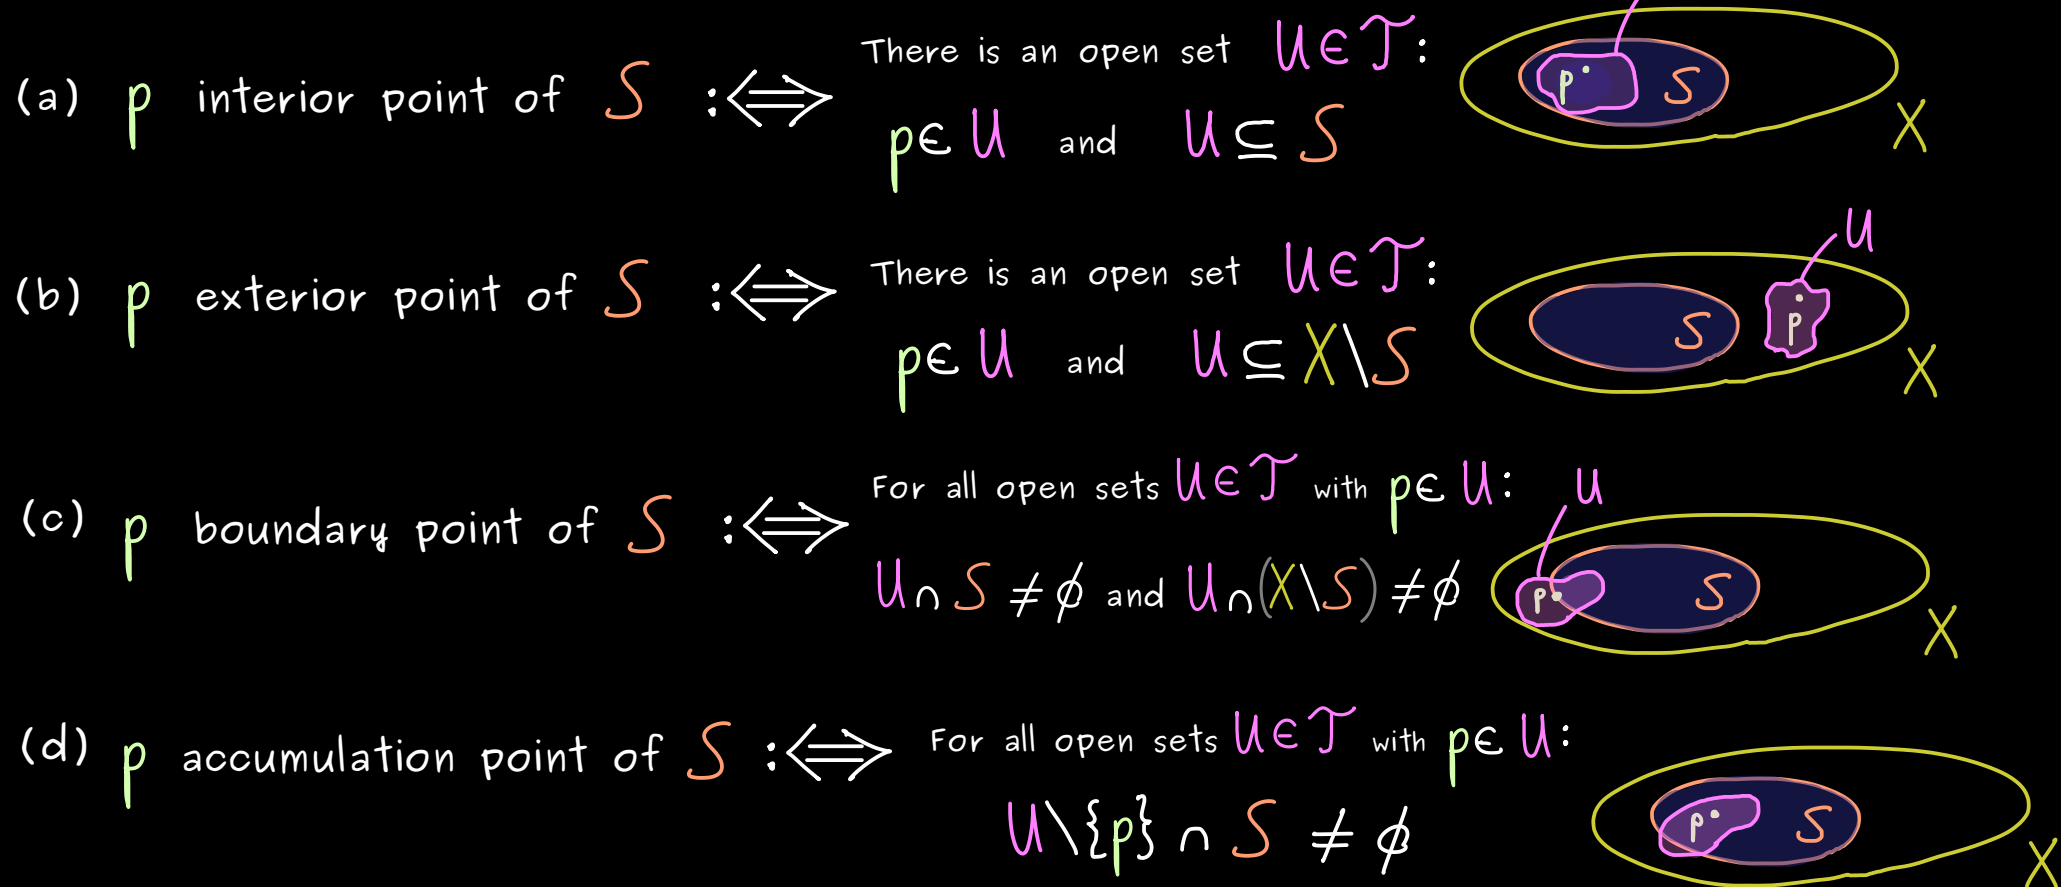 (a) p interior point of S :⟺ There is an open set U ∈ T :
p ∈ U and U ⊆ S
p S
X
(b) p exterior point of S :⟺ There is an open set U ∈ T :
p ∈ U and U ⊆ X \ S
U
S p
X
(c) p boundary point of S :⟺ For all open sets U ∈ T with p ∈ U :
U ∩ S ≠ ∅ and U ∩ (X \ S) ≠ ∅
U
p S
X
(d) p accumulation point of S :⟺ For all open sets U ∈ T with p ∈ U :
U \ {p} ∩ S ≠ ∅
p S
X